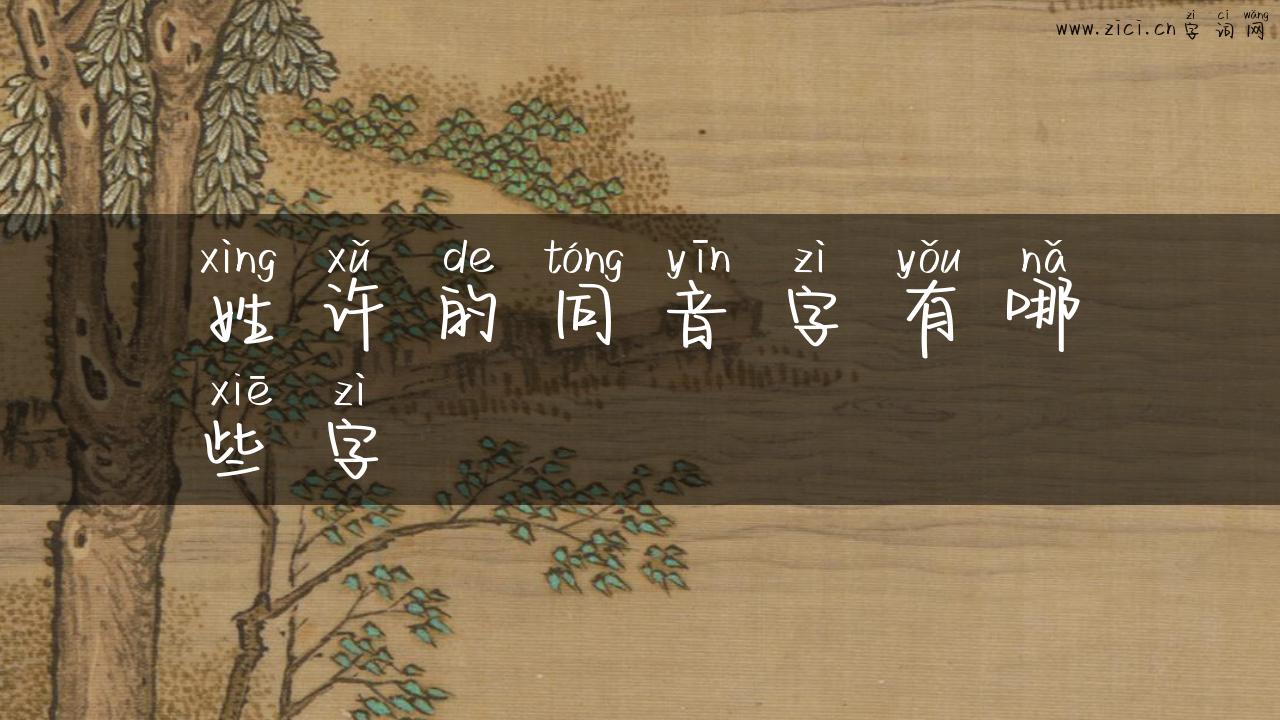 zì cí wǎng
www.zici.cn 字词网
xìng xǔ de tóng yīn zì yǒu nǎ
姓许的同音字有哪
xiē zì
些字